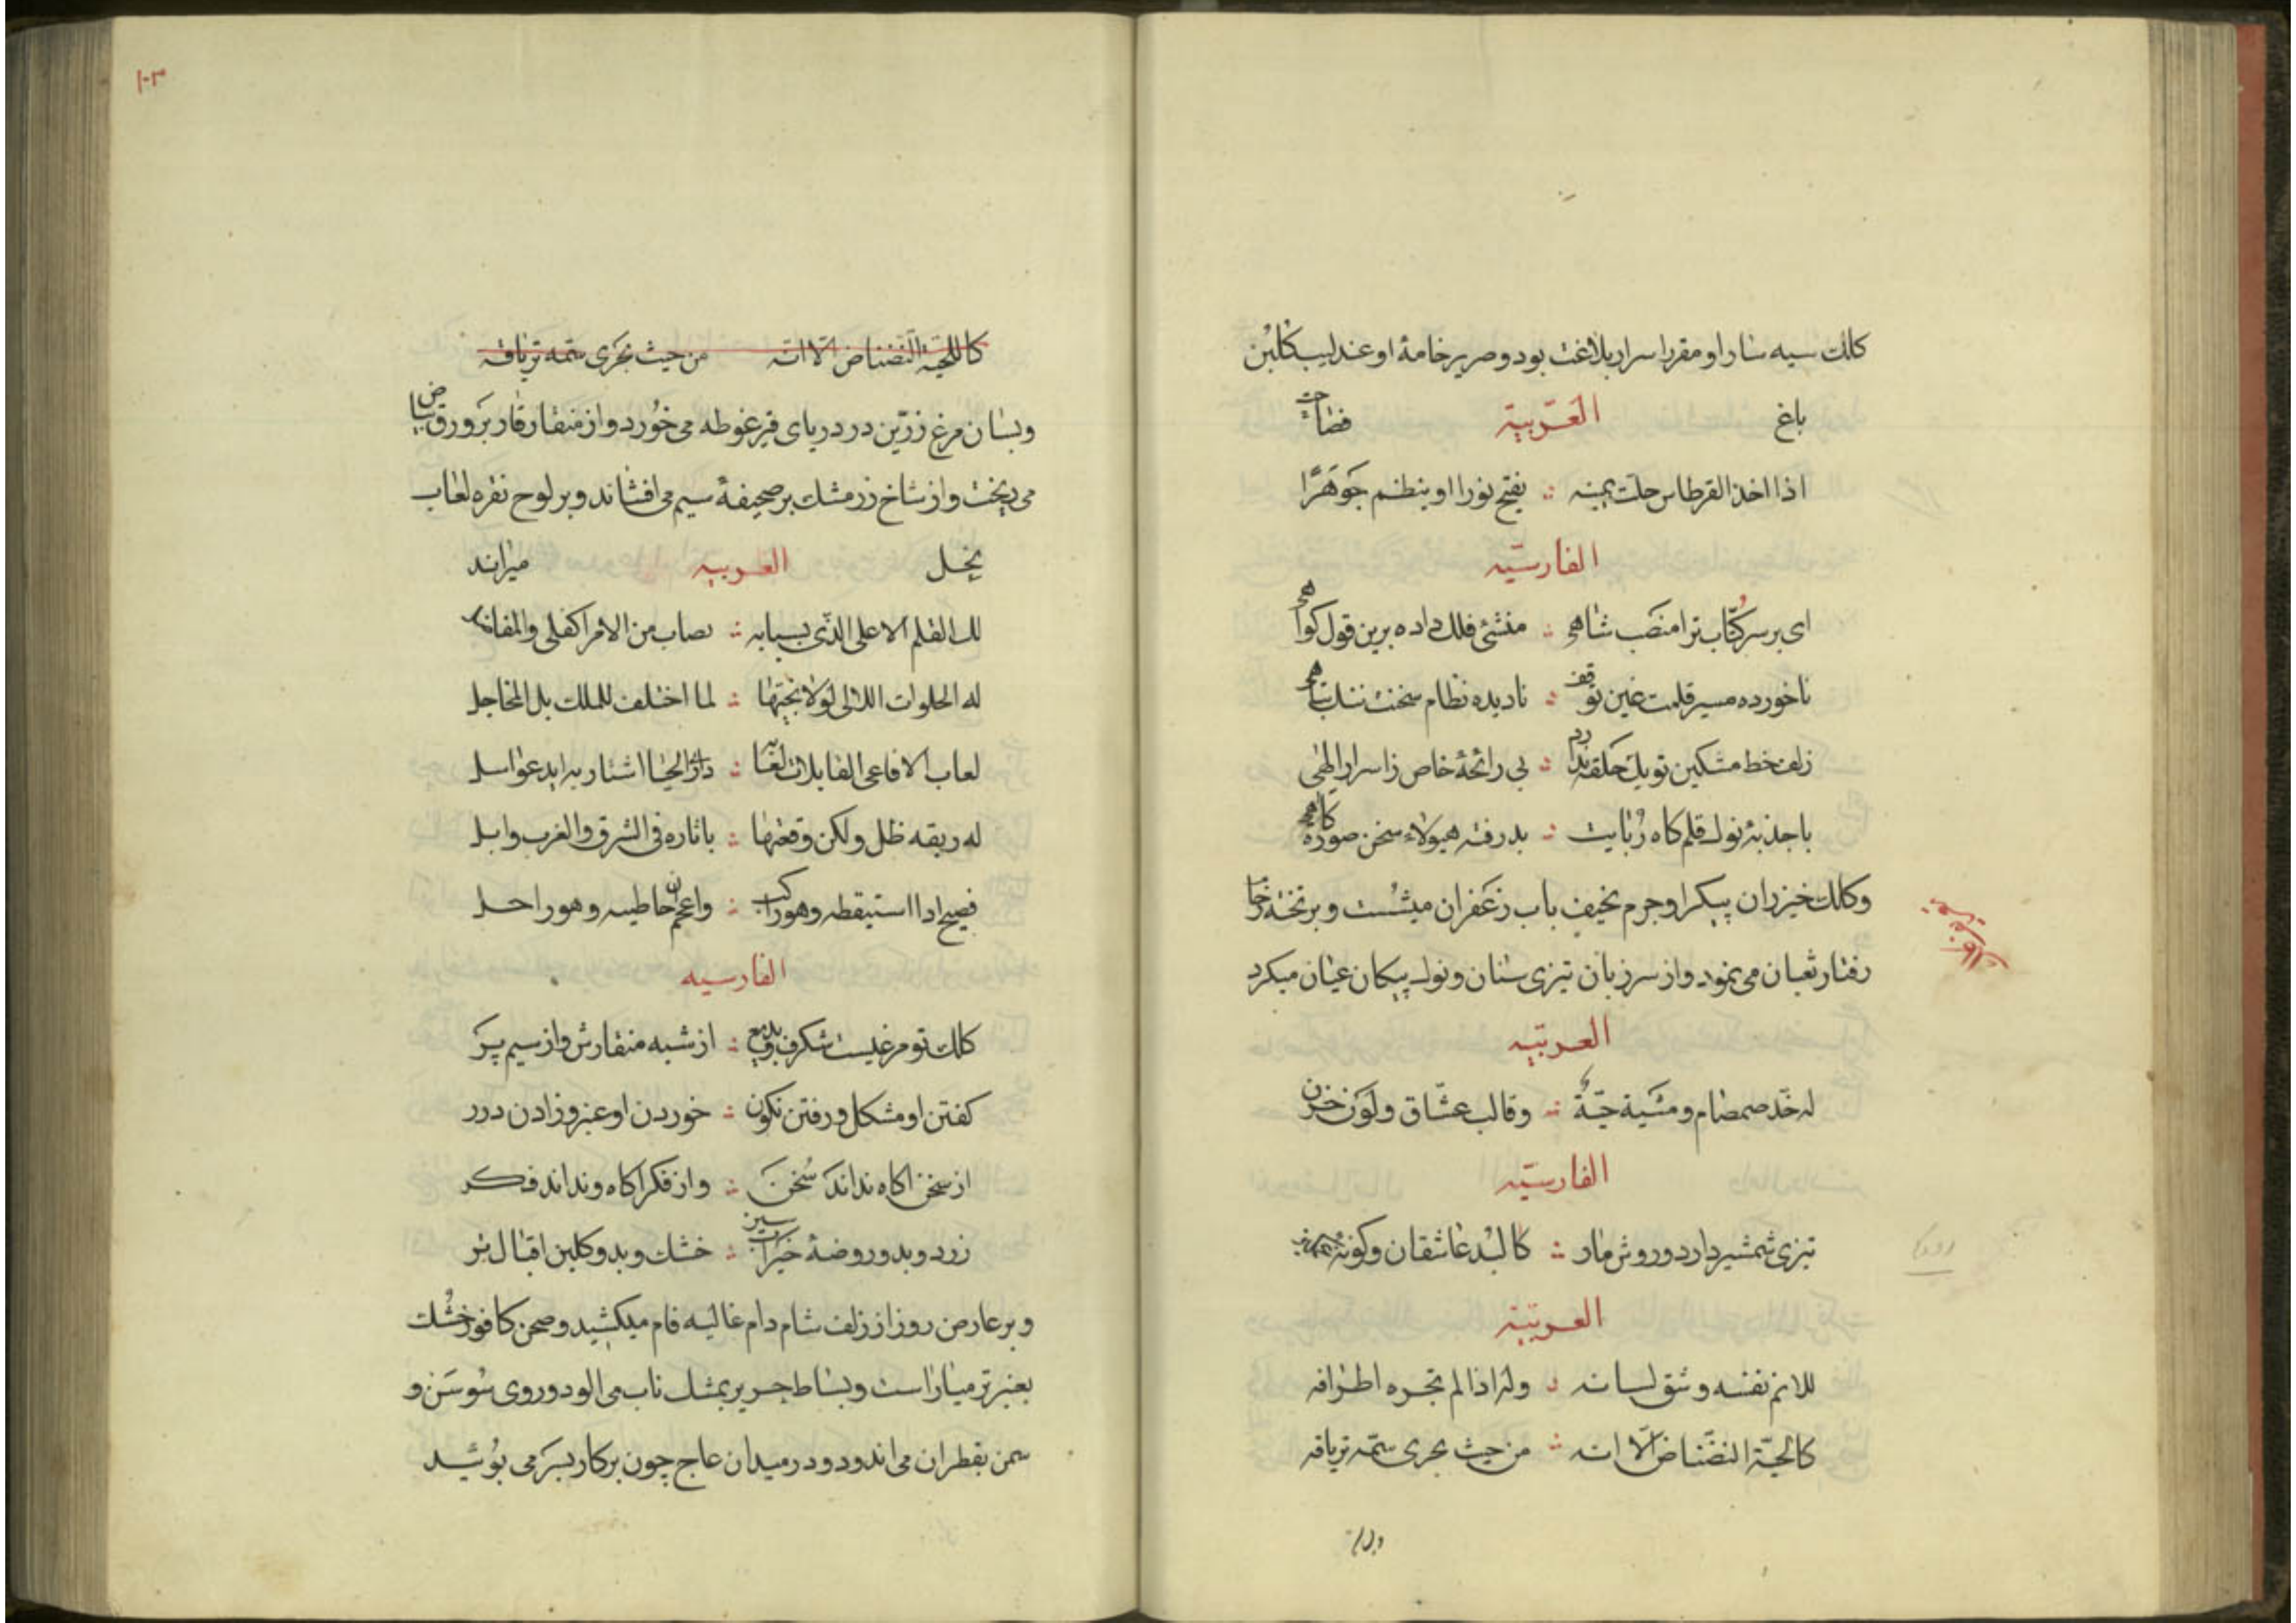 كلك سيه سار او مقرر اسرار بلاغت بود و صرير خامهٔ او عندليب كلبن
باغ العربيّة فصاحت
اذا اخذ القرطاس حلت يمينه ∴ يفتح نورا او ينظم جوهرًا
الفارسيّه
ای بر سر كُتّاب ترا منصب شاهی ∴ منشئ فلك داده برين قول كواهی
ناخورده مسير قلمت غين توقف ∴ ناديده نظام سخنت ننك تباهی
زلف خط مشكين تو يك حلقه ندارد ∴ بی رائحهٔ خاص ز اسرار الهی
با جذبهٔ نوك قلم كاه رُبايت ∴ بدرفته هيولاء سخن صورة كاهی
و كلك خيزران پيكر او جرم نحيف باب زعفران ميشست و بر تختهٔ
رفتار ثعبان می نمود و از سر زبان تيزی سنان و نوك پيكان عيان ميكرد
العربيّه
له خدّ صمصام و مشية حيّةٌ ∴ وقالب عشّاق ولون حزن
الفارسيّه
تيزی شمشير دارد و روش مار ∴ كالبد عاشقان و كونهٔ
العربيّة
للاثم نفثه وشق لسانه ∴ وله اذا لم تجره اطرافه
كالحيّة النضناض الّا انه ∴ من حيث يجری سمّه ترياقه
۱۰۳
كاللحيّة النضناض الّا انّه من حيث يجری سمّه ترياقه
وبسان مرغ زرّين در دريای قير غوطه می خورد و از منقار قار بر ورق بياض
می ريخت و از شاخ زر مشك بر صحيفهٔ سيم می افشاند و بر لوح نقره لعاب
نحل العربيه ميراند
لك القلم الاعلی الذی بسبابه ∴ تصاب من الامر الكلی والمفاصل
له الخلوات اللائی لولا نجيّها ∴ لما اختلف للملك بل المحافل
لعاب الافاعی القاتلات لعابه ∴ اشتارته ايد عواسل
له ريقه طل ولكن وقعها ∴ باثاره فی الشرق والغرب وابل
فصيح اذا استنطقه وهو راكب ∴ واعجم ان خاطبته وهو راحل
الفارسيه
كلك تو مرغيست شكرف و بديع ∴ از شبه منقارش و از سيم پر
كفتن او مشكل و رفتن نكون ∴ خوردن او عنبر و زادن درر
از سخن اكاه نداند سخن ∴ و از فكر اكاه و نداند فكر
زرد و بدو روضهٔ خيرات سبز ∴ خشك و بدو كلبن اقبال تر
و بر عارض روز از زلف شام دام غاليه فام ميكشيد و صحن كافور خشك
بعنبر تر مياراست و بساط حرير بمشك ناب می الود و روی سوسن و
سمن بقطران می اندود و در ميدان عاج چون پركار بسر می پوئيد